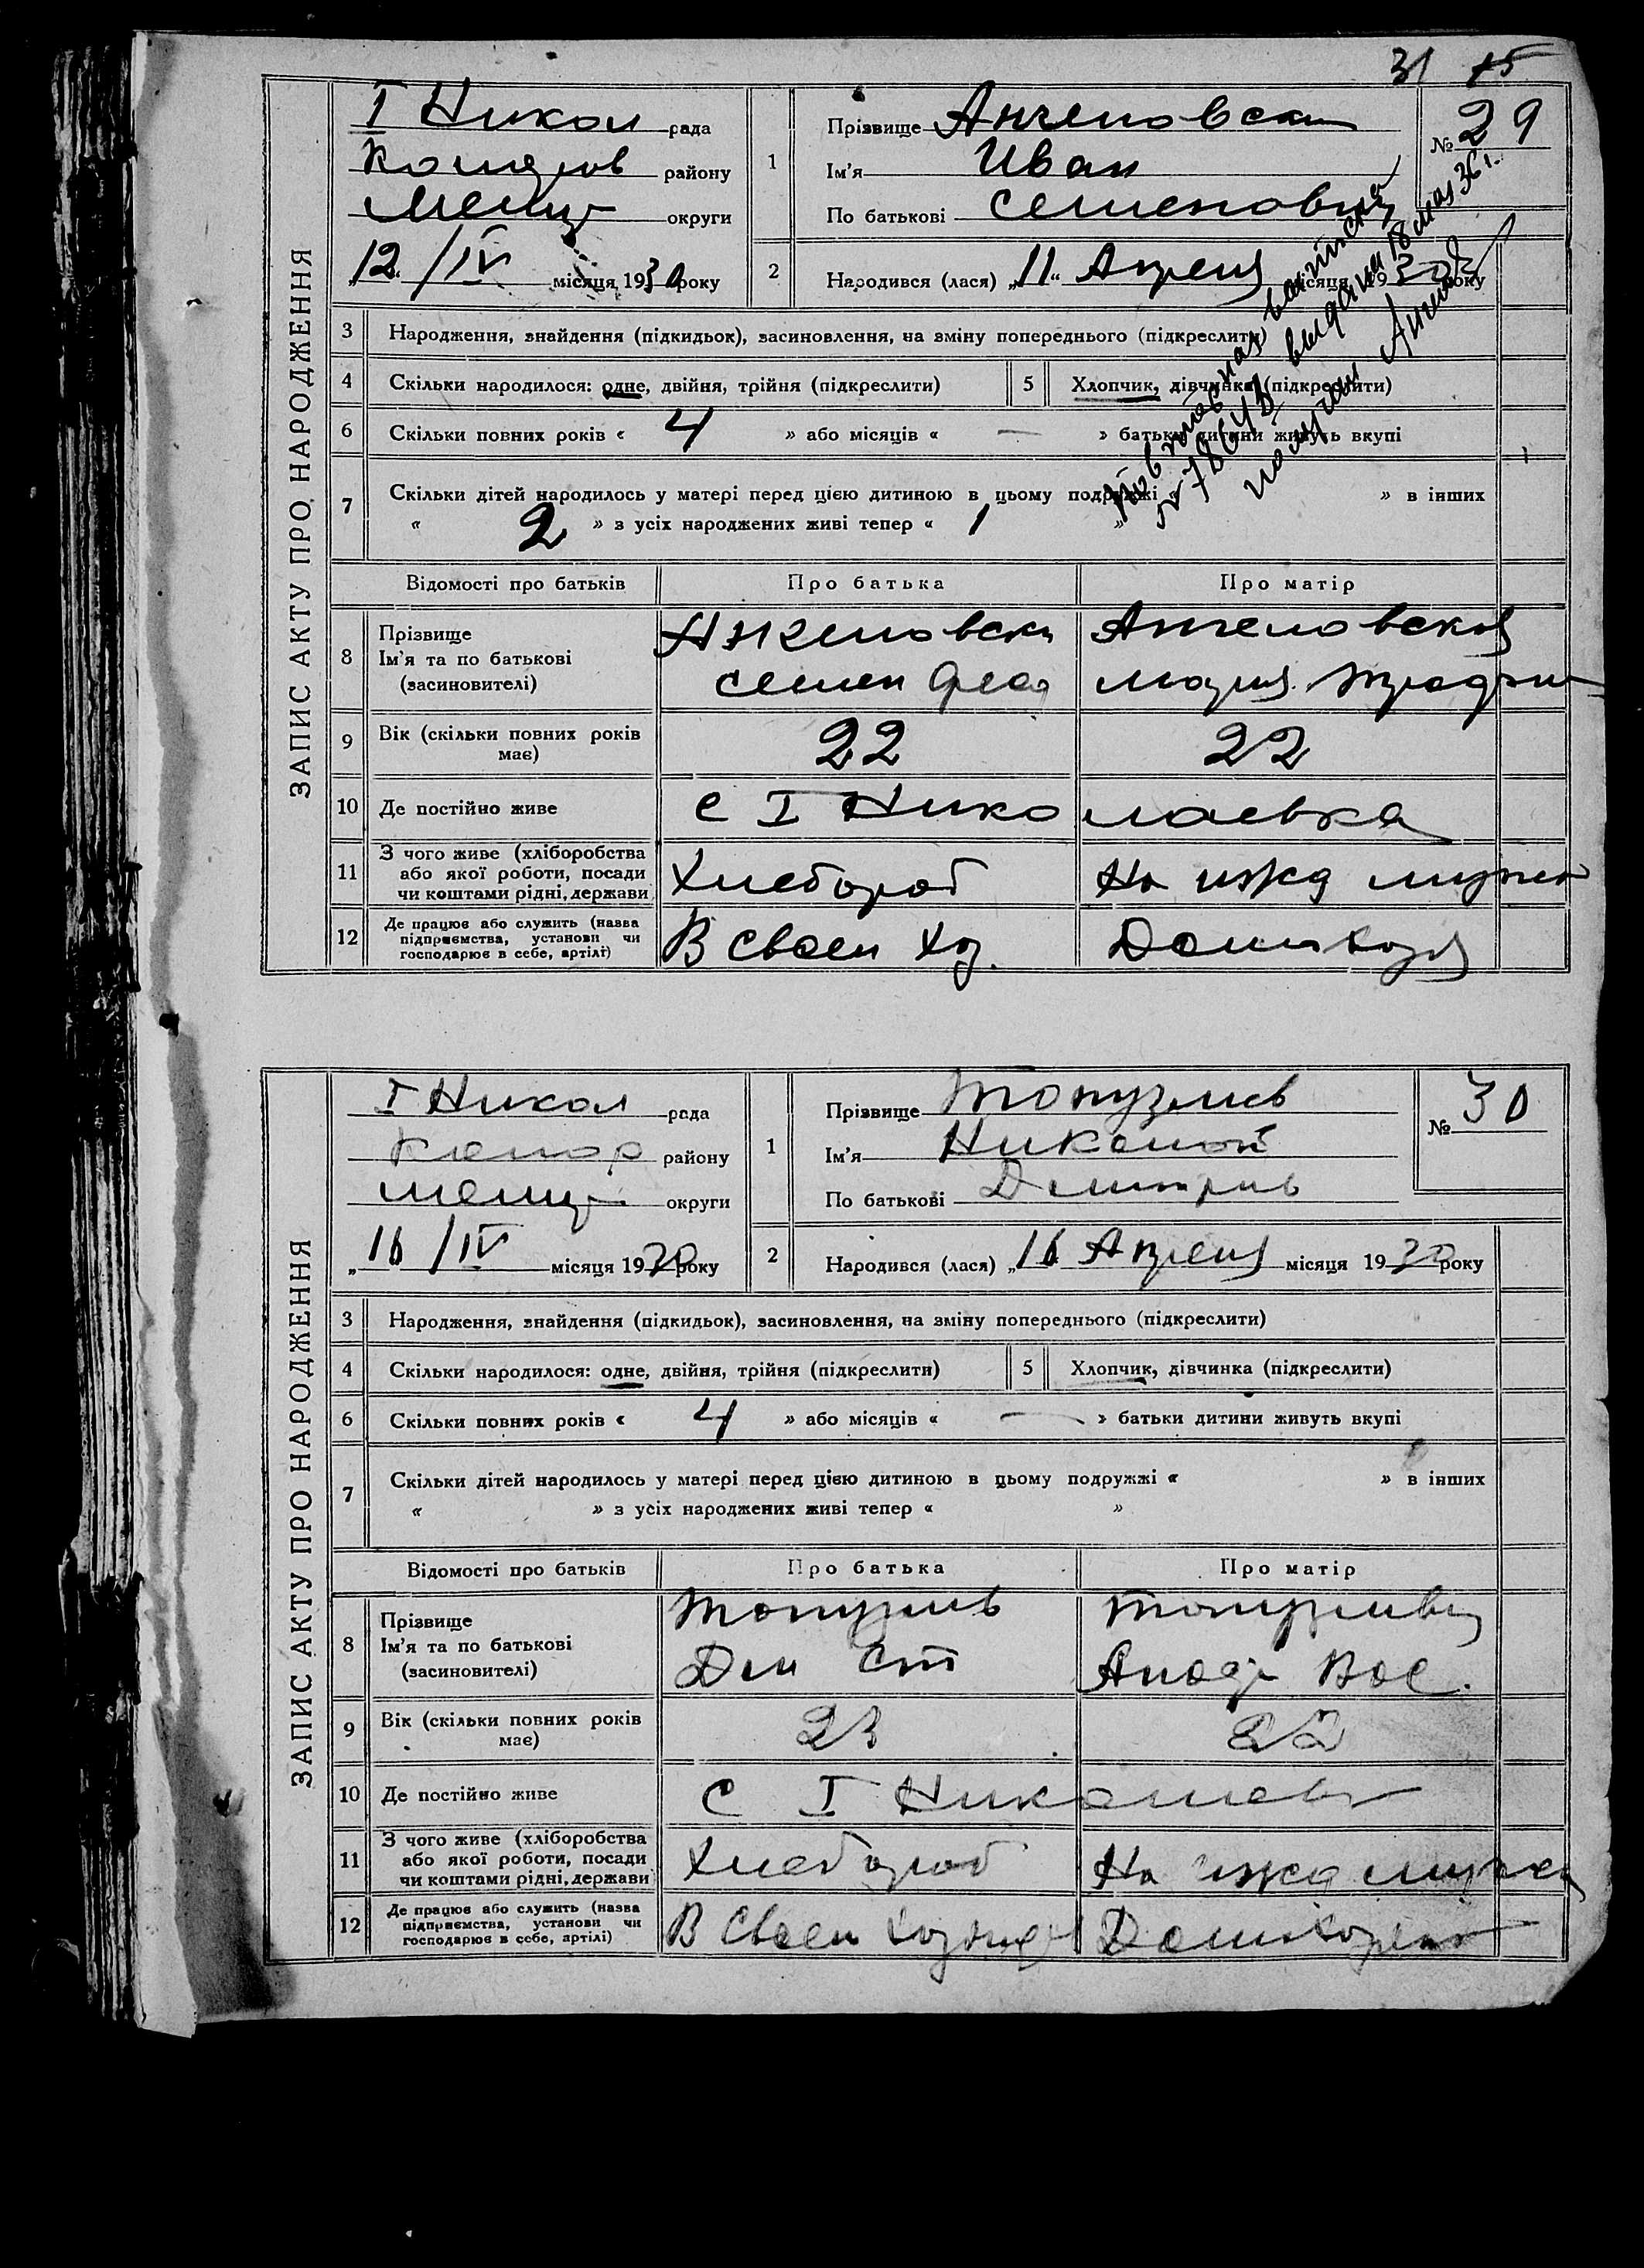 31 15
ЗАПИС АКТУ ПРО НАРОДЖЕННЯ
I Никол рада
району
округи
„12“ /IV місяця 1930 року
1
Прізвище Ангеловски
Ім'я Иван
По батькові Семенович
№ 29
2 Народився (лася) „11“ Апреля місяця 1930 року
Повторная выписка
выдана 18 мая 36 г.
получил
3 Народження, знайдення (підкидьок), засиновлення, на зміну попереднього (підкреслити)
4 Скільки народилося: одне, двійня, трійня (підкреслити) 5 Хлопчик, дівчинка (підкреслити)
6 Скільки повних років « 4 » або місяців « — » батьки дитини живуть вкупі
7 Скільки дітей народилось у матері перед цією дитиною в цьому подружжі « » в інших
« 2 » з усіх народжених живі тепер « 1 »
Відомості про батьків Про батька Про матір
8 Прізвище Ангеловски Ангеловская
Ім'я та по батькові
(засиновителі) Семен Феод Мария
9 Вік (скільки повних років має) 22 22
10 Де постійно живе с I Николаевка
11 З чого живе (хліборобства
або якої роботи, посади
чи коштами рідні, держави Хлебороб На ижд мужа
12 Де працює або служить (назва
підприємства, установи чи
господарює в себе, артілі) В своем хоз. Домихозя
ЗАПИС АКТУ ПРО НАРОДЖЕННЯ
I Никол рада
району
округи
„16 /IV місяця 1930 року
1
Прізвище Топузлиев
Ім'я Николай
По батькові Дмитрив
№ 30
2 Народився (лася) „16 Апреля місяця 1930 року
3 Народження, знайдення (підкидьок), засиновлення, на зміну попереднього (підкреслити)
4 Скільки народилося: одне, двійня, трійня (підкреслити) 5 Хлопчик, дівчинка (підкреслити)
6 Скільки повних років « 4 » або місяців « — » батьки дитини живуть вкупі
7 Скільки дітей народилось у матері перед цією дитиною в цьому подружжі « » в інших
« » з усіх народжених живі тепер « »
Відомості про батьків Про батька Про матір
8 Прізвище
Ім'я та по батькові
(засиновителі) Дм Ст Вас.
9 Вік (скільки повних років має) 23 22
10 Де постійно живе с I Николаев
11 З чого живе (хліборобства
або якої роботи, посади
чи коштами рідні, держави Хлебороб На ижд мужа
12 Де працює або служить (назва
підприємства, установи чи
господарює в себе, артілі) В своем